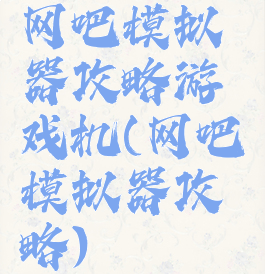 网吧模拟
器攻略游
戏机(网吧
模拟器攻
略)